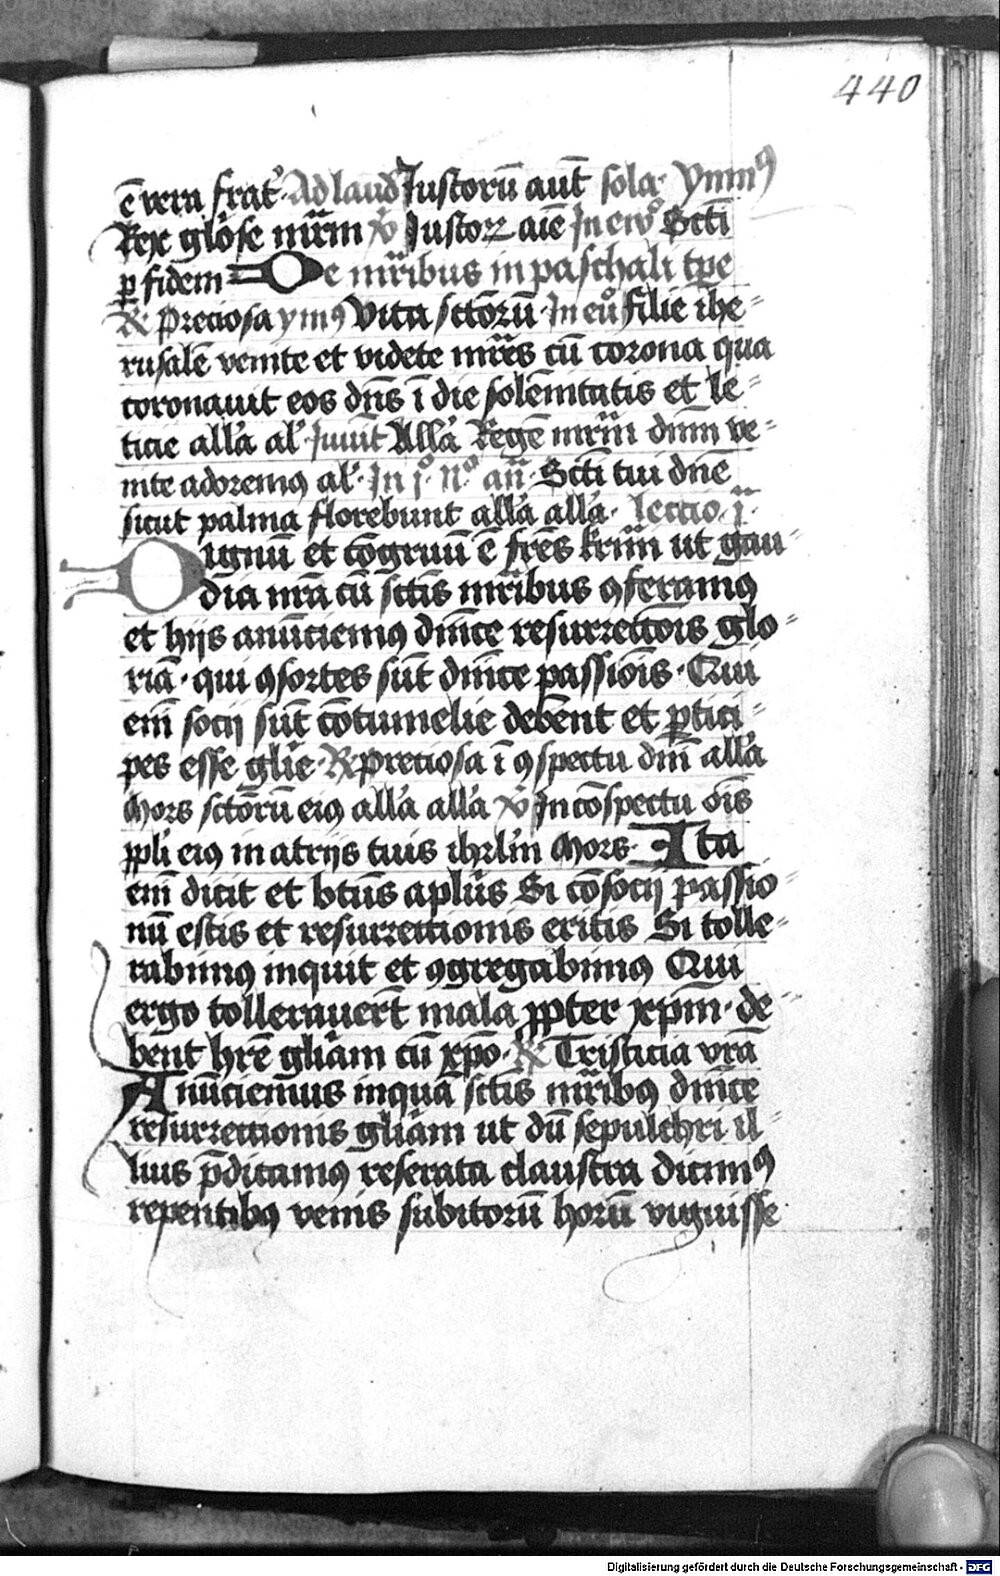 440
ē vera frat᷒ · Ad laud᷒ Iustorū aūt sola· Ymn⁹
Rex glōse mr̄m v̓ Iustoꝝ aīe In ewᵒ Scti
ꝑ fidem De mr̄ibus in paschali tp̄e
R̓ Preciosa ymꝰ Vita sctōrū · In euᵒ filie ihe⸗
rusalē venite et videte mr̄es cū corona qua
coronauit eos dn̄s ī die solēnitatis et le⸗
ticie all̓a al̓ · Inuit̄ All̓a Regē mr̄m dn̄m ve⸗
nite adoremꝰ al̓· In j° n° an̄ · Scti tui dn̄e
sicut palma florebunt all̓a all̓a· lectio j·
Dignū et cōgruū ē fr̄es kr̄mi ut gau⸗
dia nr̄a cū sctis mr̄ibus ꝯferamꝰ
et hijs anūciemꝰ dn̄ice resurrectōis glo⸗
riā · qui ꝯsortes sūt dn̄ice passiōis · Qui
em̄ socij sūt cōtumelie debēnt et ꝑtici⸗
pes esse gl̓ie · R̓ Preciosa ī ꝯspectu dn̄i all̓a
Mors sctōrū eiꝰ all̓a all̓a v̓ In cōspectu oīs
ppl̓i eiꝰ in atrijs tuis ihrl̓m Mors· Ita
em̄ dicit et bt̄us apl̓us Si cōsocij passio⸗
nū estis et resurrectionis eritis Si tolle⸗
rabimꝰ inquit et ꝯgregabimꝰ Qui
ergo tollerauer̄t mala ꝓpter xp̄m · de⸗
bent hr̄e gl̓iam cū xp̄o · R̓ Tristicia vr̄a
Anūciemus inquā sctis mr̄ibꝰ dn̄ice
resurrectionis gl̓iam ut dū sepulchri il⸗
lius p̄dicamꝰ reserata claustra dicimꝰ
repentibꝰ venis subitorū horū viguisse
Digitalisierung gefördert durch die Deutsche Forschungsgemeinschaft - DFG